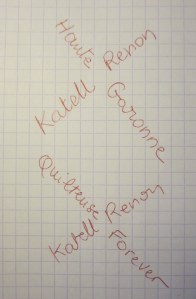 Haute Garonne
Katell Renon
Quilteuse Forever
Katell Renon